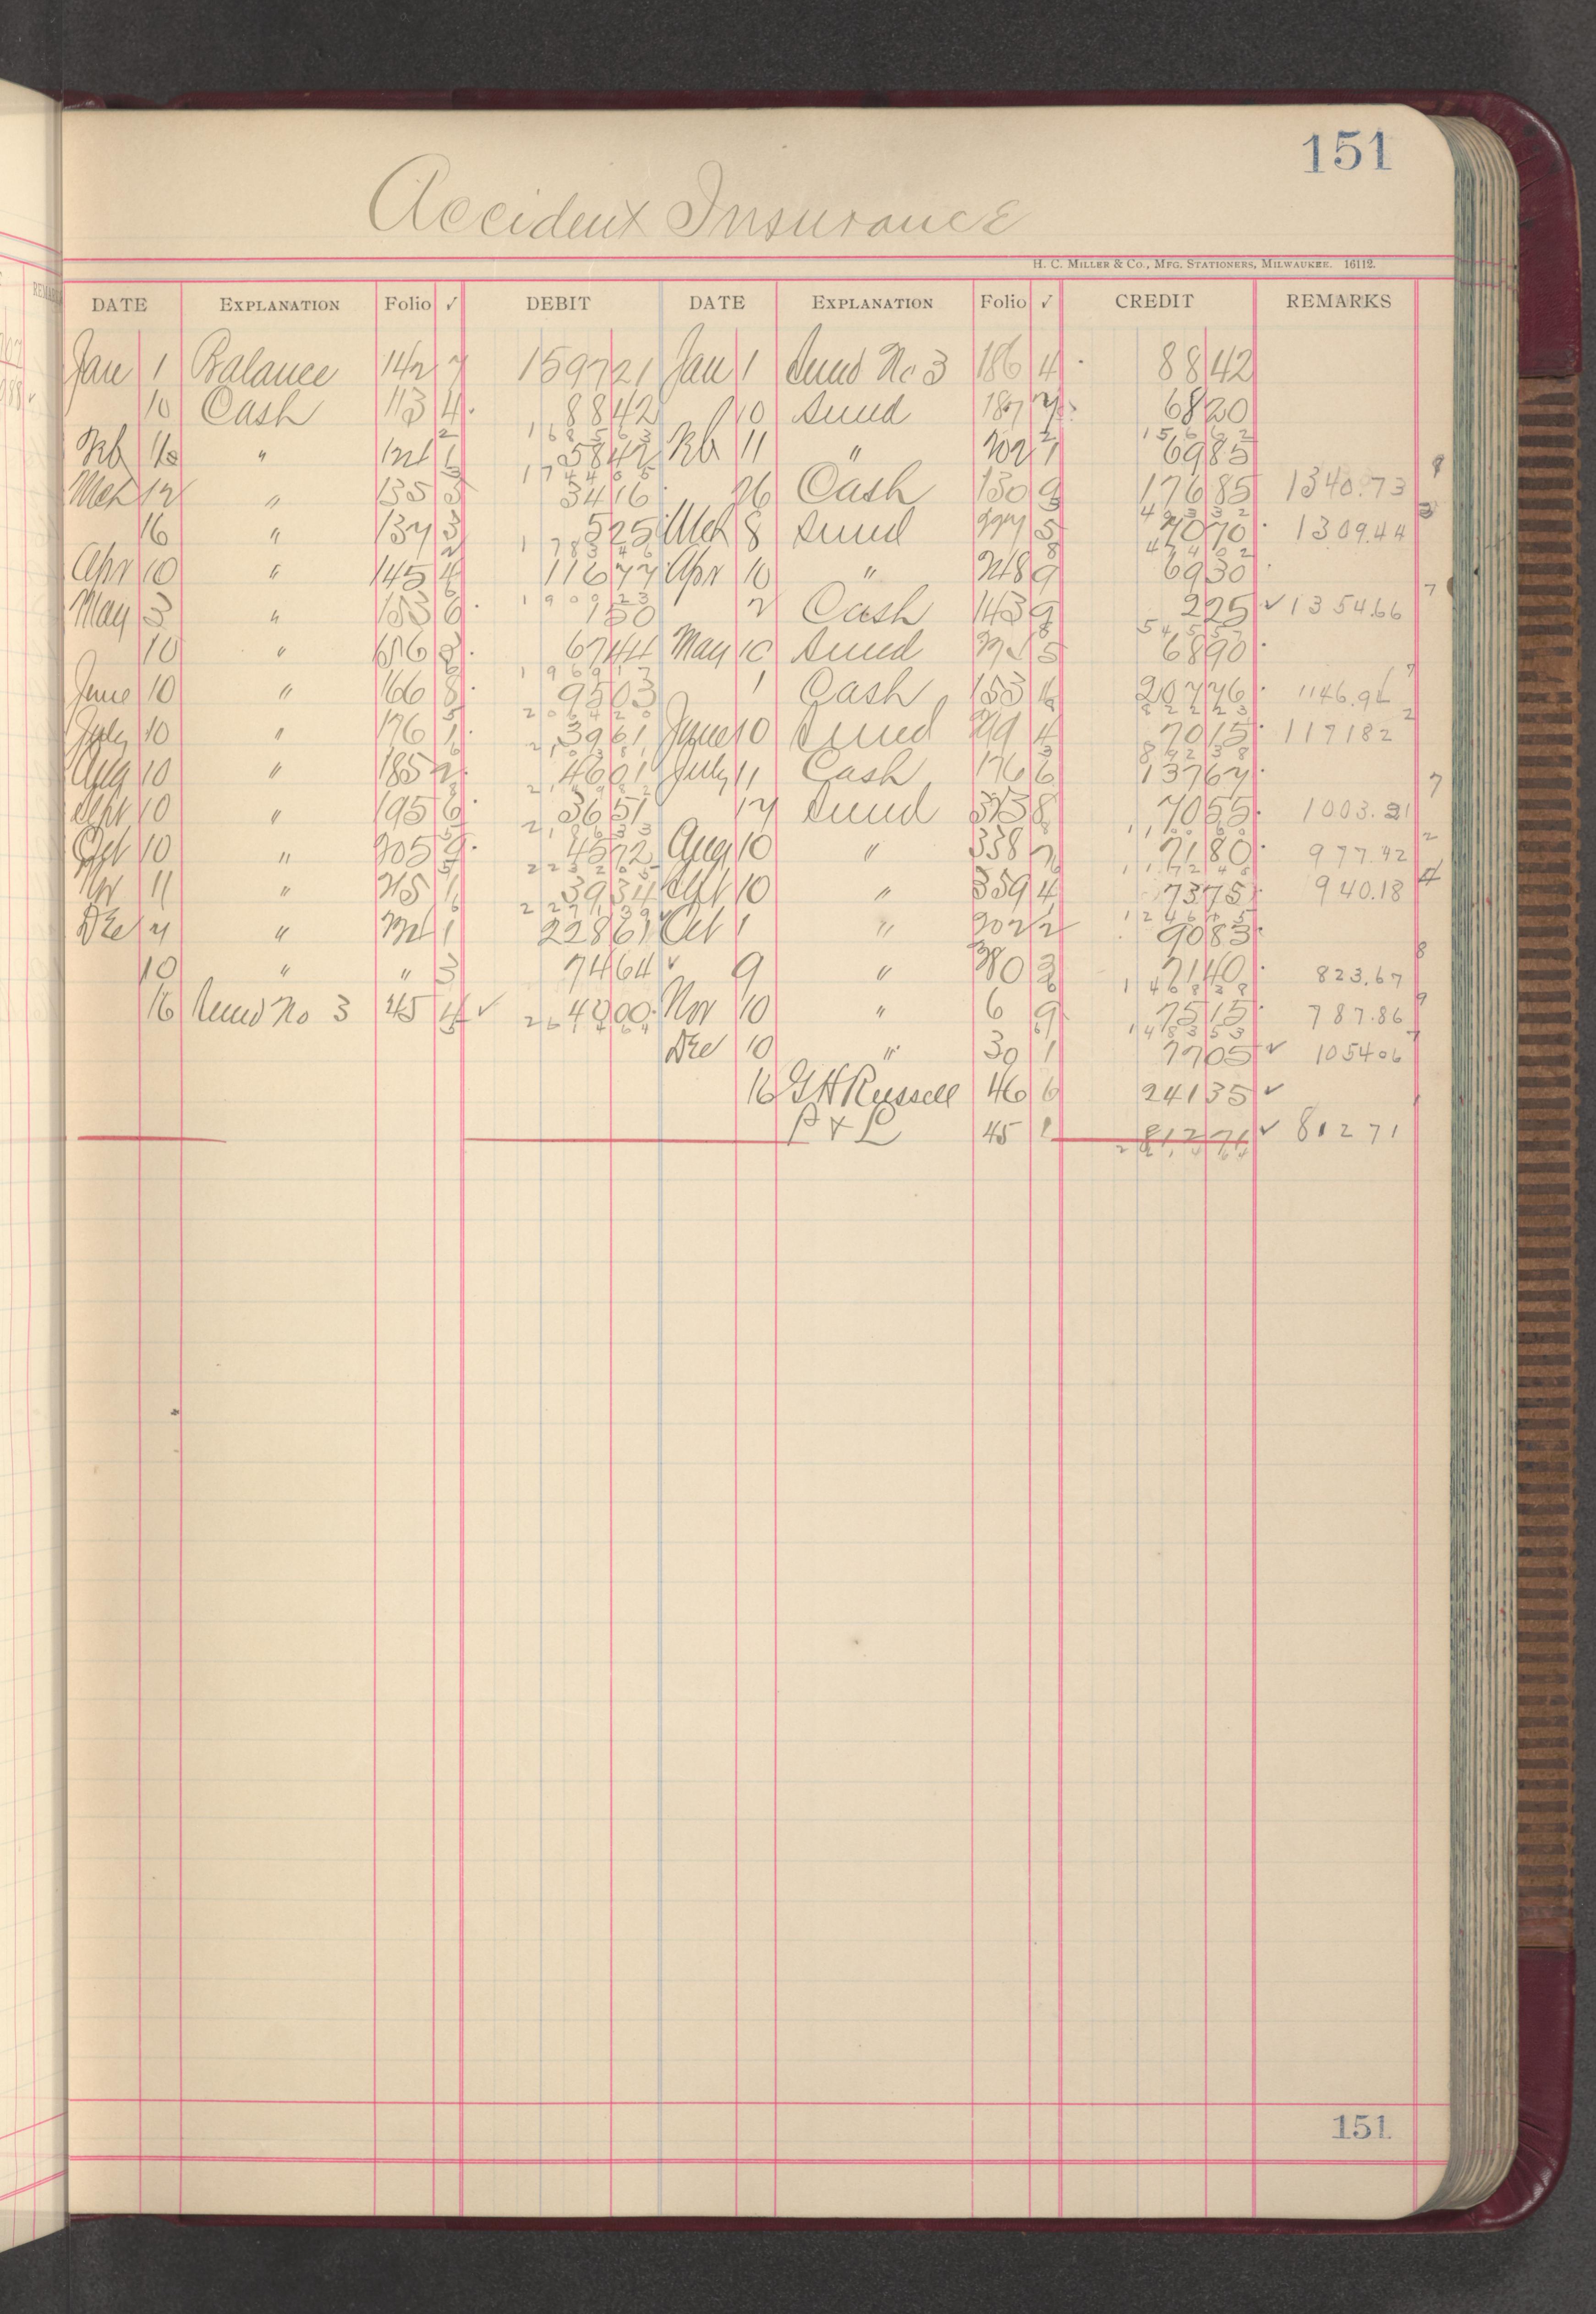 151
Accident Insurance
H. C. Miller & Co., Mfg. Stationers, Milwaukee. 16112.
DATE EXPLANATION Folio ✓ DEBIT DATE EXPLANATION Folio ✓ CREDIT REMARKS
Jan 1 Balance 142 7 1597 21 Jan 1 Sund No 3 186 4 88 42
10 Cash 113 4 88 42 10 Sund 187 7 68 20
1 6 8 5 6 3 1 5 6 6 2
Feb 10 " 124 1 58 42 Feb 11 " 202 7 69 85
1 7 4 4 0 5
Mch 12 " 135 3 34 16 26 Cash 130 9 176 85 1340.73
4 0 3 3 2
16 " 137 3 5 25 Mch 8 Sund 227 5 70 70 1309.44
1 7 8 3 4 6 4 7 4 0 2
Apr 10 " 145 4 116 77 Apr 10 " 248 9 69 30
1 9 0 0 2 3
May 3 " 153 6 1 50 2 Cash 143 9 2 25 ✓ 1354.66
10 " 156 8 67 44 May 10 Sund 5 68 90
1 9 6 9 1 7
June 10 " 166 8 95 03 1 Cash 153 207 76 1146.96
2 0 6 4 2 0 8 2 2 2 3
July 10 " 176 1 39 61 June 10 Sund 299 4 70 15 1171 82
2 1 0 3 8 1 8 9 2 3 8
Aug 10 " 185 2 46 01 July 11 Cash 176 6 137 67
2 1 4 9 8 2
Sept 10 " 195 6 36 51 17 Sund 8 70 55 1003.21
2 1 8 6 3 3
Oct 10 " 205 9 45 72 Aug 10 " 338 71 80 977.42
2 2 3 2 0 5 1 1 7 2 4 8
Nov 11 " 215 1 39 34 Sept 10 " 359 4 73 75 940.18
2 2 7 1 3 9 1 2 4 6 2 3
Dec 7 " 1 228 61 Oct 1 " 2 90 83
10 " " 3 74 64 ✓ 9 " 380 3 71 40 823.67
16 Sund No 3 45 4 ✓ 40 00 Nov 10 " 6 9 75 15 787.86
Dec 10 " 30 1 77 05 ✓ 1054 06
16 G H Russell 46 6 241 35 ✓
P & L 45 812 71 ✓ 812 71
151